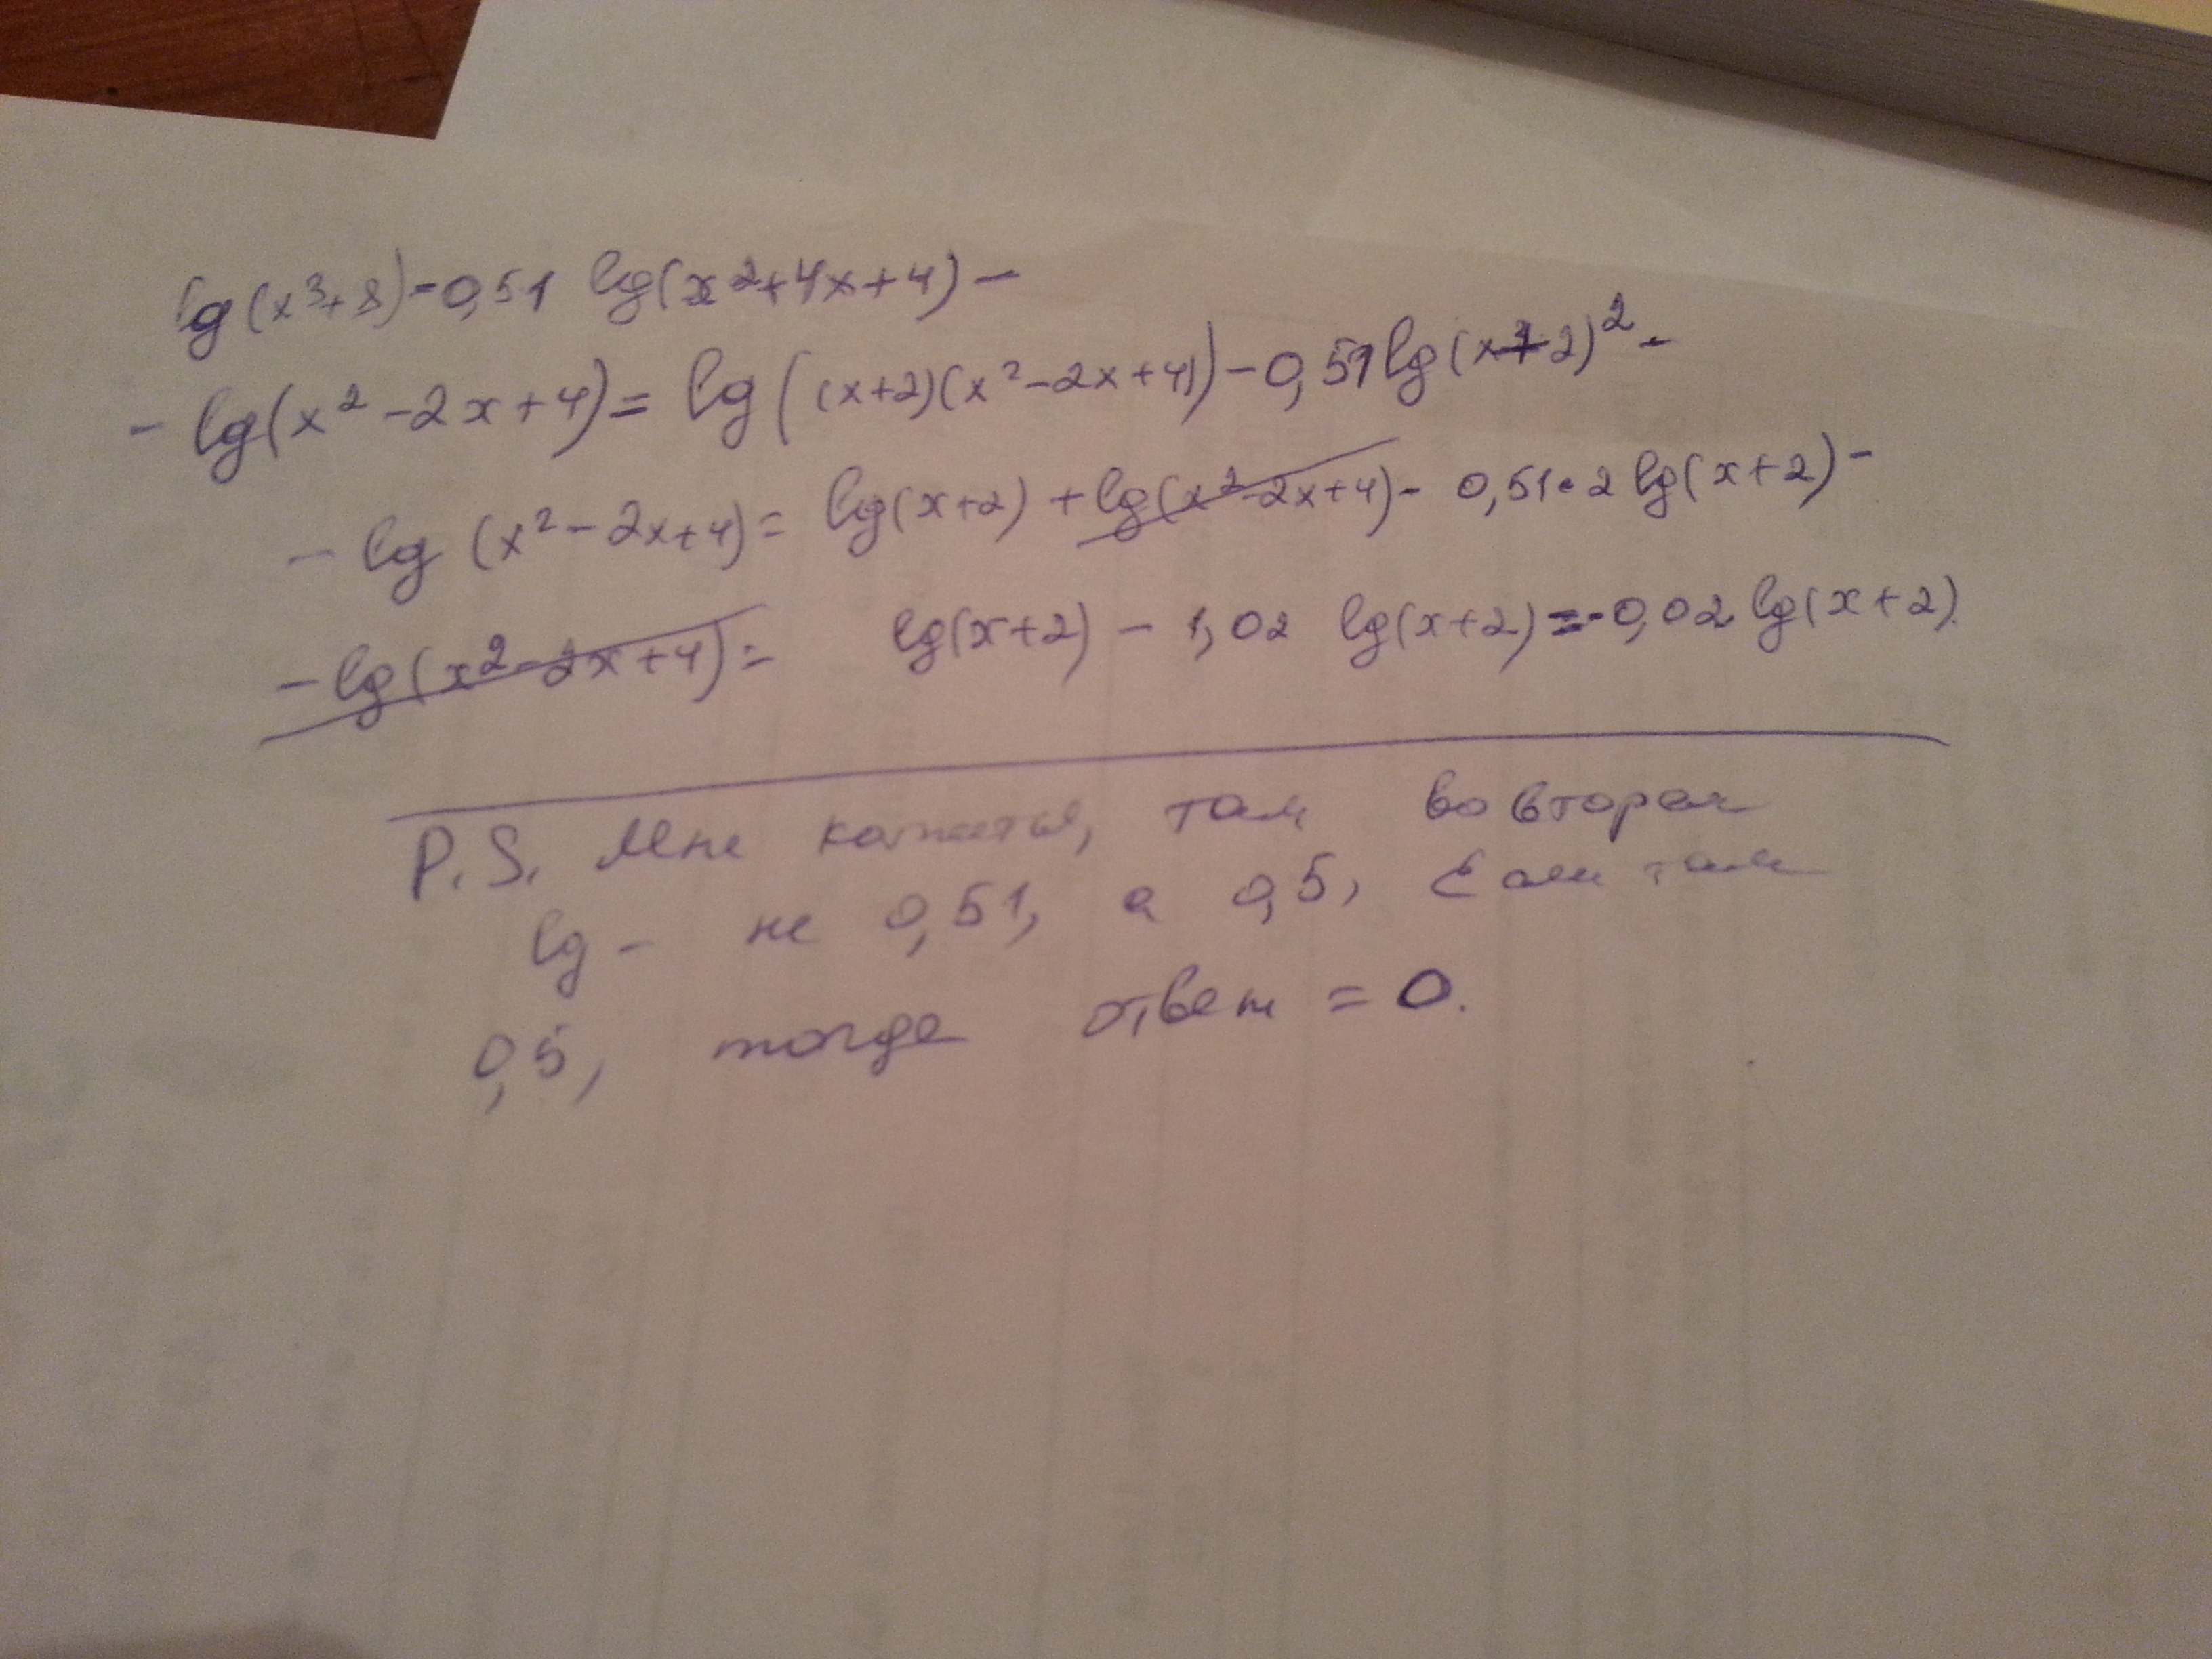 lg(x³+8)-0,51 lg(x²+4x+4)-
-lg(x²-2x+4)= lg((x+2)(x²-2x+4))-0,51lg(x+2)²-
-lg (x²-2x+4)= lg(x+2)+lg(x²-2x+4)- 0,51·2 lg(x+2)-
-lg(x²-2x+4)= lg(x+2) - 1,02 lg(x+2)=-0,02 lg(x+2).
P.S. Мне кажется, там во втором
lg - не 0,51, а 0,5, Если там
0,5, тогда ответ = 0.